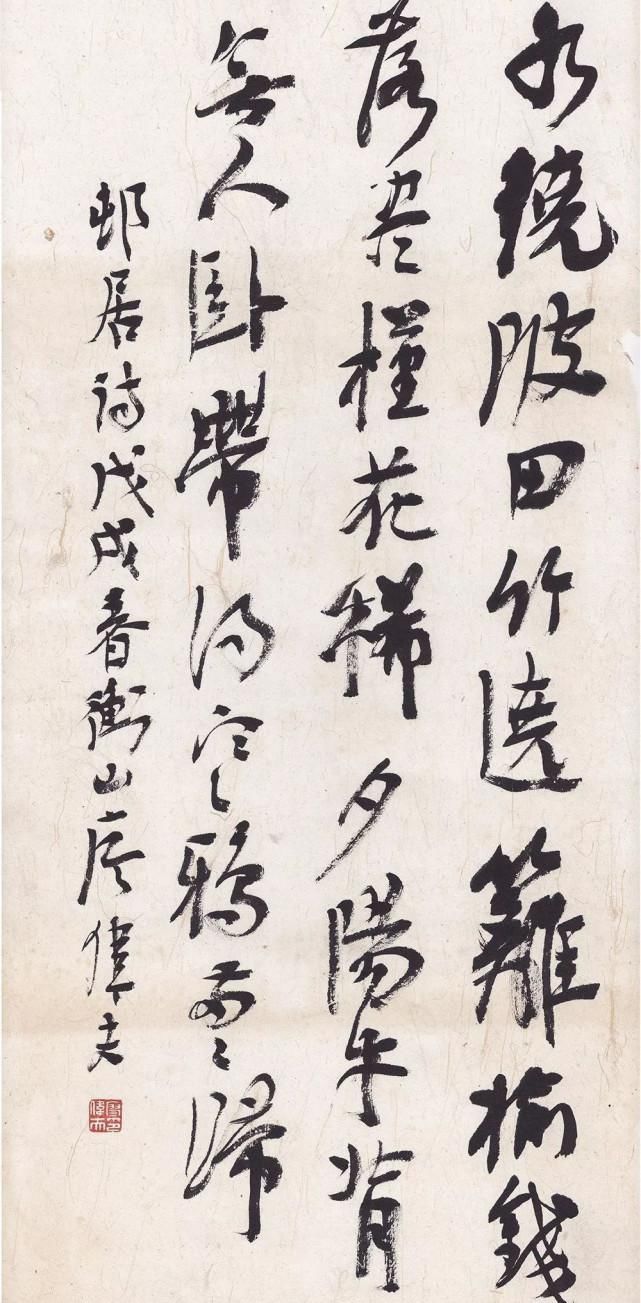 水繞陂田竹遶籬榆錢
落尽槿花稀夕陽牛背
無人卧帶得寒鴉兩〻歸
邨居詩戊戌春衡山廖偉夫